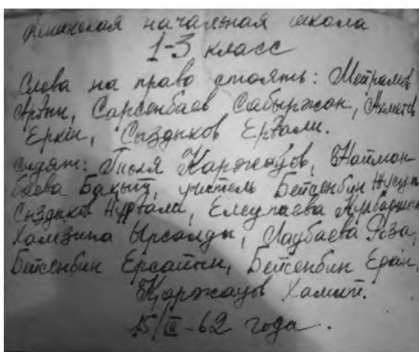 Ленинская начальная школа
1-3 класс
Слева на право стоять: Мейрамов
Артын, Сарсенбаев Сабыржан, Ахметов
Еркін, Сыздыков Ертали.
сидят: Тюля Каржауов, Найман
баева Бакыш, учитель Бейсенбин Жусуп
Сыздыков Нуртали, Елеупаева Курбаним
Хамзина Ырсалды, Лаубаева Роза,
Бейсенбин Ерсайын, Бейсенбин Еран,
Каржауов Хамит.
15/III-62 года.